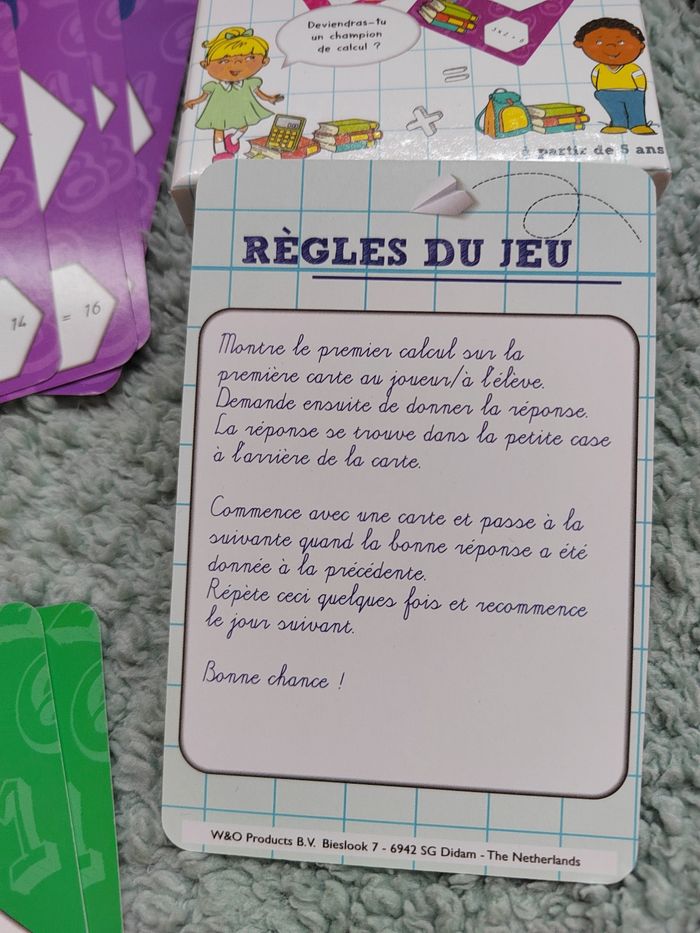 Deviendras-tu
un champion
de calcul ?
3x2 = 6
à partir de 5 ans
14
= 16
RÈGLES DU JEU
Montre le premier calcul sur la
première carte au joueur/à l'élève.
Demande ensuite de donner la réponse.
La réponse se trouve dans la petite case
à l'arrière de la carte.
Commence avec une carte et passe à la
suivante quand la bonne réponse a été
donnée à la précédente.
Répète ceci quelques fois et recommence
le jour suivant.
Bonne chance !
W&O Products B.V. Bieslook 7 - 6942 SG Didam - The Netherlands